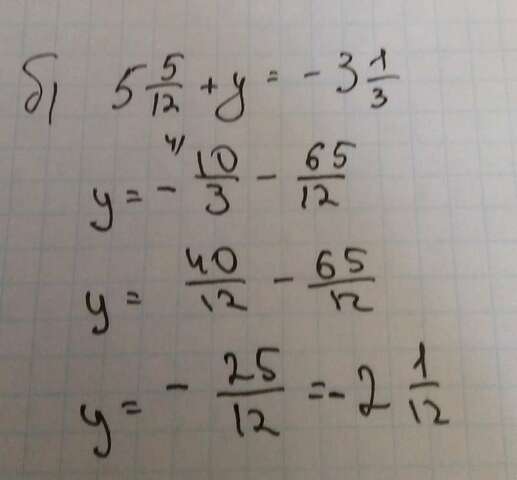 б) 5 5/12 + y = - 3 1/3
y = - 10/3 4) - 65/12
y = 40/12 - 65/12
y = - 25/12 = - 2 1/12